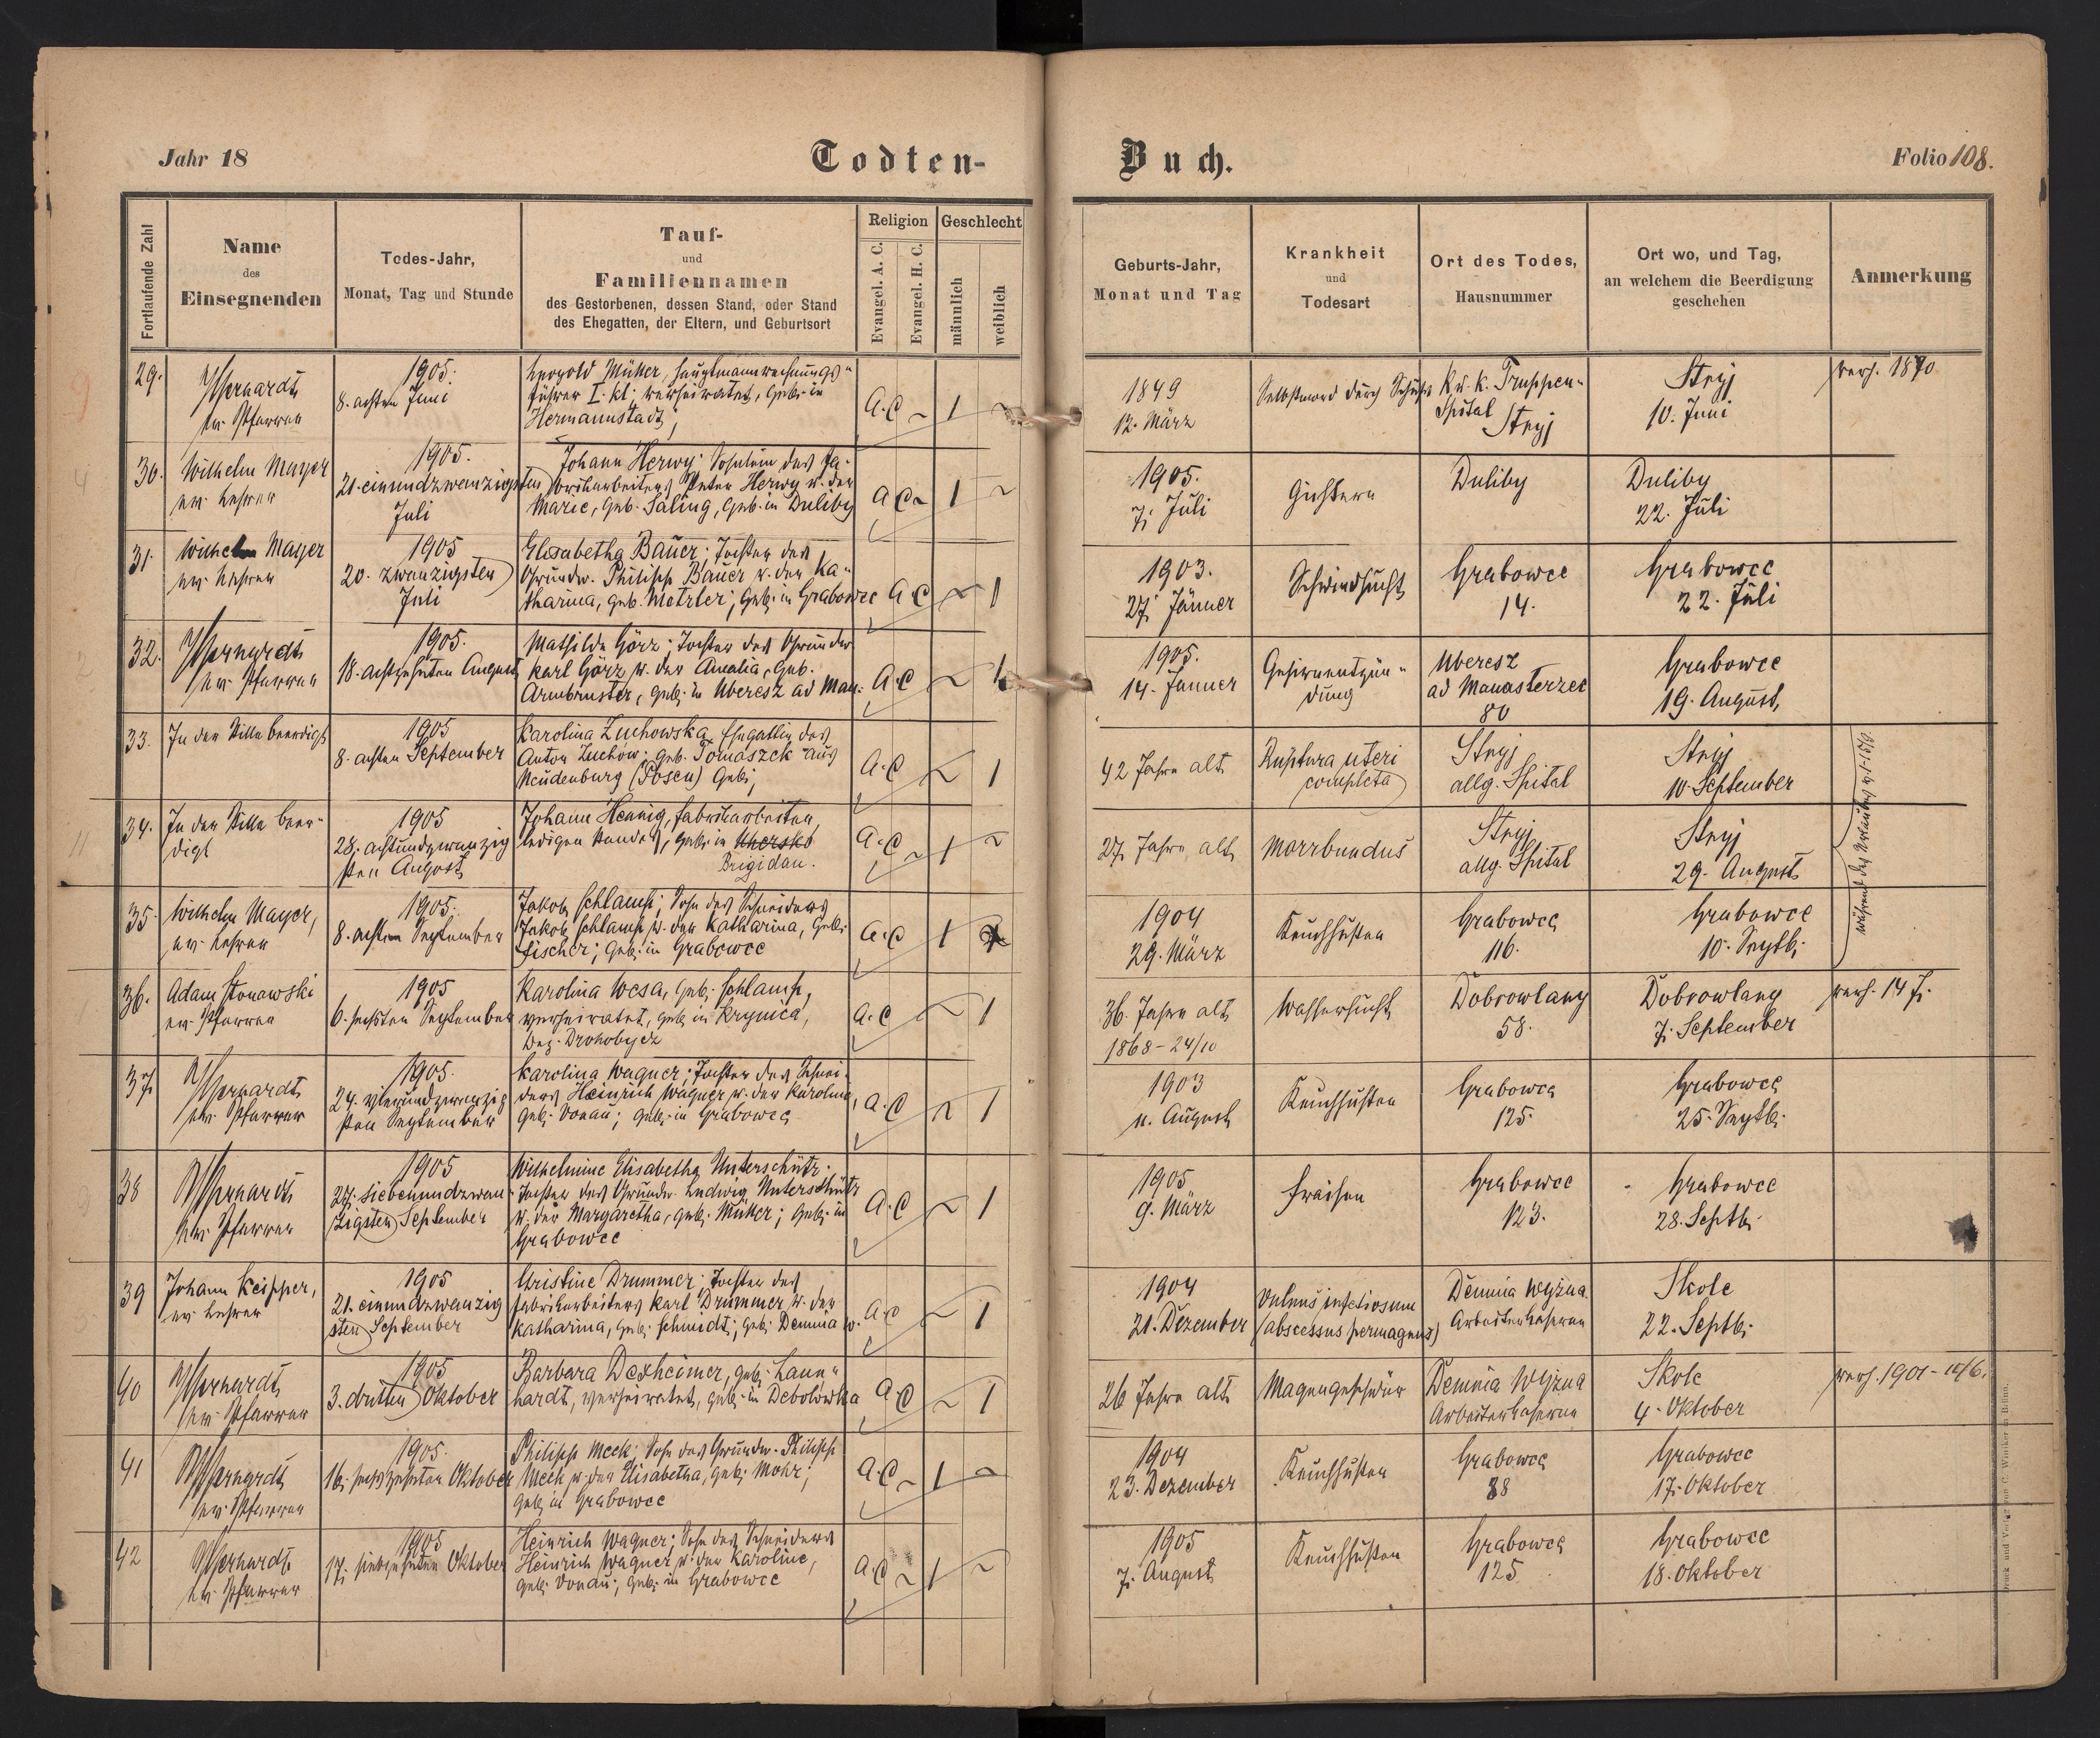 Jahr 18
Todten-
Buch.
Folio 108.
Fortlaufende Zahl
Name
des
Einsegnenden
Todes-Jahr,
Monat, Tag und Stunde
Tauf-
und
Familiennamen
des Gestorbenen, dessen Stand, oder Stand
des Ehegatten, der Eltern, und Geburtsort
Religion
Evangel. A. C.
Evangel. H. C.
Geschlecht
männlich
weiblich
Geburts-Jahr,
Monat und Tag
Krankheit
und
Todesart
Ort des Todes,
Hausnummer
Ort wo, und Tag,
an welchem die Beerdigung
geschehen
Anmerkung
29.
ev. Pfarrer
1905.
8. achten Juni
Leopold Müller, Hauptmannrechnungs-
führer I. kl; verheiratet, geb. in
Hermannstadt,
A.C ~ 1 ~
1849
12. März
Selbstmord durch Schuß
K. u. k. Truppen-
Spital
Stryj
Stryj
10. Juni
verh. 1870
30.
Wilhelm Mayer
ev. Lehrer
1905.
21. einundzwanzigsten
Juli
Johann Herwy; Söhnlein des Fa-
brikarbeiters Peter Herwy u. der
Marie, geb. Saling, geb. in Duliby
A C ~ 1 ~
1905.
7. Juli
Gichtern
Duliby
Duliby
22. Juli
31.
Wilhelm Mayer
ev. Lehrer
1905
20. zwanzigsten
Juli
Elisabetha Bauer; Tochter des
Grundw. Philipp Bauer u. der Ka-
tharina, geb. Metzler; geb. in Grabowce
A C ~ 1
1903.
27. Jänner
Schwindsucht
Grabowce
14.
Grabowce
22. Juli
32.
ev. Pfarrer
1905.
18. achtzehnten August
Mathilde Görz; Tochter des Grundw.
Karl Görz u. der Amalia, geb.
Armbruster, geb. in Uberesz ad Man.
A.C ~ 1
1905.
14. Jänner
Gehirnentzün-
dung
Uberesz
ad Manasterzec
80
Grabowce
19. August,
33.
In der Stille beerdigt
1905
8. achten September
Karolina Zuchowska, Ehegattin des
Anton Zuchow; geb. Tomaszek aus
Neudenburg (Posen) geb;
A.C ~ 1
42 Jahre alt
Ruptura uteri
completa
Stryj
allg. Spital
Stryj
10. September
34.
In der Stille beer-
digt
1905
28. achtundzwanzig
sten August
Johann Hennig, Fabrikarbeiter,
ledigen Standes, geb. in Uhersko
Brigidau.
A.C ~ 1 ~
27 Jahre alt
Morrbundus
Stryj
allg. Spital
Stryj
29. August
35.
Wilhelm Mayer,
ev. Lehrer
1905.
8. achten September
Jakob Schlamp; Sohn des Schneiders
Jakob Schlamp u. der Katharina, geb.
Fischer; geb. in Grabowce
A.C 1
1904
29. März
Keuchhusten
Grabowce
116.
Grabowce
10. Septb.
während des Urlaubes
36.
Adam Stonawski
ev. Pfarrer
1905
6. sechsten September
Karolina Wesa, geb. Schlamp,
verheiratet, geb. in Krynica,
Bez. Drohobycz
A.C ~ 1
36 Jahre alt
1868 - 24/10
Wassersucht
Dobrowlany
58.
Dobrowlany
7. September
verh. 14 J.
37.
ev. Pfarrer
1905.
24. vierundzwanzig
sten September
Karolina Wagner; Tochter des Schnei-
ders Heinrich Wagner u. der Karoline,
geb. Donau; geb. in Grabowce
A.C ~ 1
1903
11. August
Keuchhusten
Grabowce
125.
Grabowce
25. Septb.
38
ev. Pfarrer
1905
27. siebenundzwan-
zigsten September
Wilhelmine Elisabetha Unterschütz.
Tochter des Grundw. Ludwig Unterschütz
u. der Margaretha, geb. Müller; geb. in
Grabowce
A.C ~ 1
1905
9. März
Fraisen
Grabowce
123.
Grabowce
28. Septb.
39
Johann Keipper,
ev. Lehrer
1905
21. einundzwanzig
sten September
Christine Drummer; Tochter des
Fabrikarbeiters Karl Drummer u. der
Katharina, geb. Schmidt; geb. Demnia w.
A.C ~ 1
1904
21. Dezember
Vulnus infectiosum
(abscessus permagnus)
Demnia Wyżna
Arbeiterkaserne
Skole
22. Septb.
40
ev. Pfarrer
1905
3. dritten Oktober
Barbara Dexheimer, geb. Laun-
hardt, verheiratet, geb. in Debolówka
A.C ~ 1
26 Jahre alt
Magengeschwür
Demnia Wyżna
Arbeiterkaserne
Skole
4. Oktober
verh. 1901 - 10/6.
41
ev. Pfarrer
1905.
16. sechszehnten Oktober
Philipp Meck; Sohn des Grundw. Philipp
Meck u. der Elisabetha, geb. Mohr;
geb. in Grabowce
A.C ~ 1 ~
1904
23. Dezember
Keuchhusten
Grabowce
88
Grabowce
17. Oktober
42
ev. Pfarrer
1905
17. siebzehnten Oktober
Heinrich Wagner; Sohn des Schneiders
Heinrich Wagner u. der Karoline,
geb. Donau; geb. in Grabowce
A.C ~ 1 ~
1905
7. August
Keuchhusten
Grabowce
125
Grabowce
18. Oktober
Druck und Verlag von C. Winiker in Brünn.